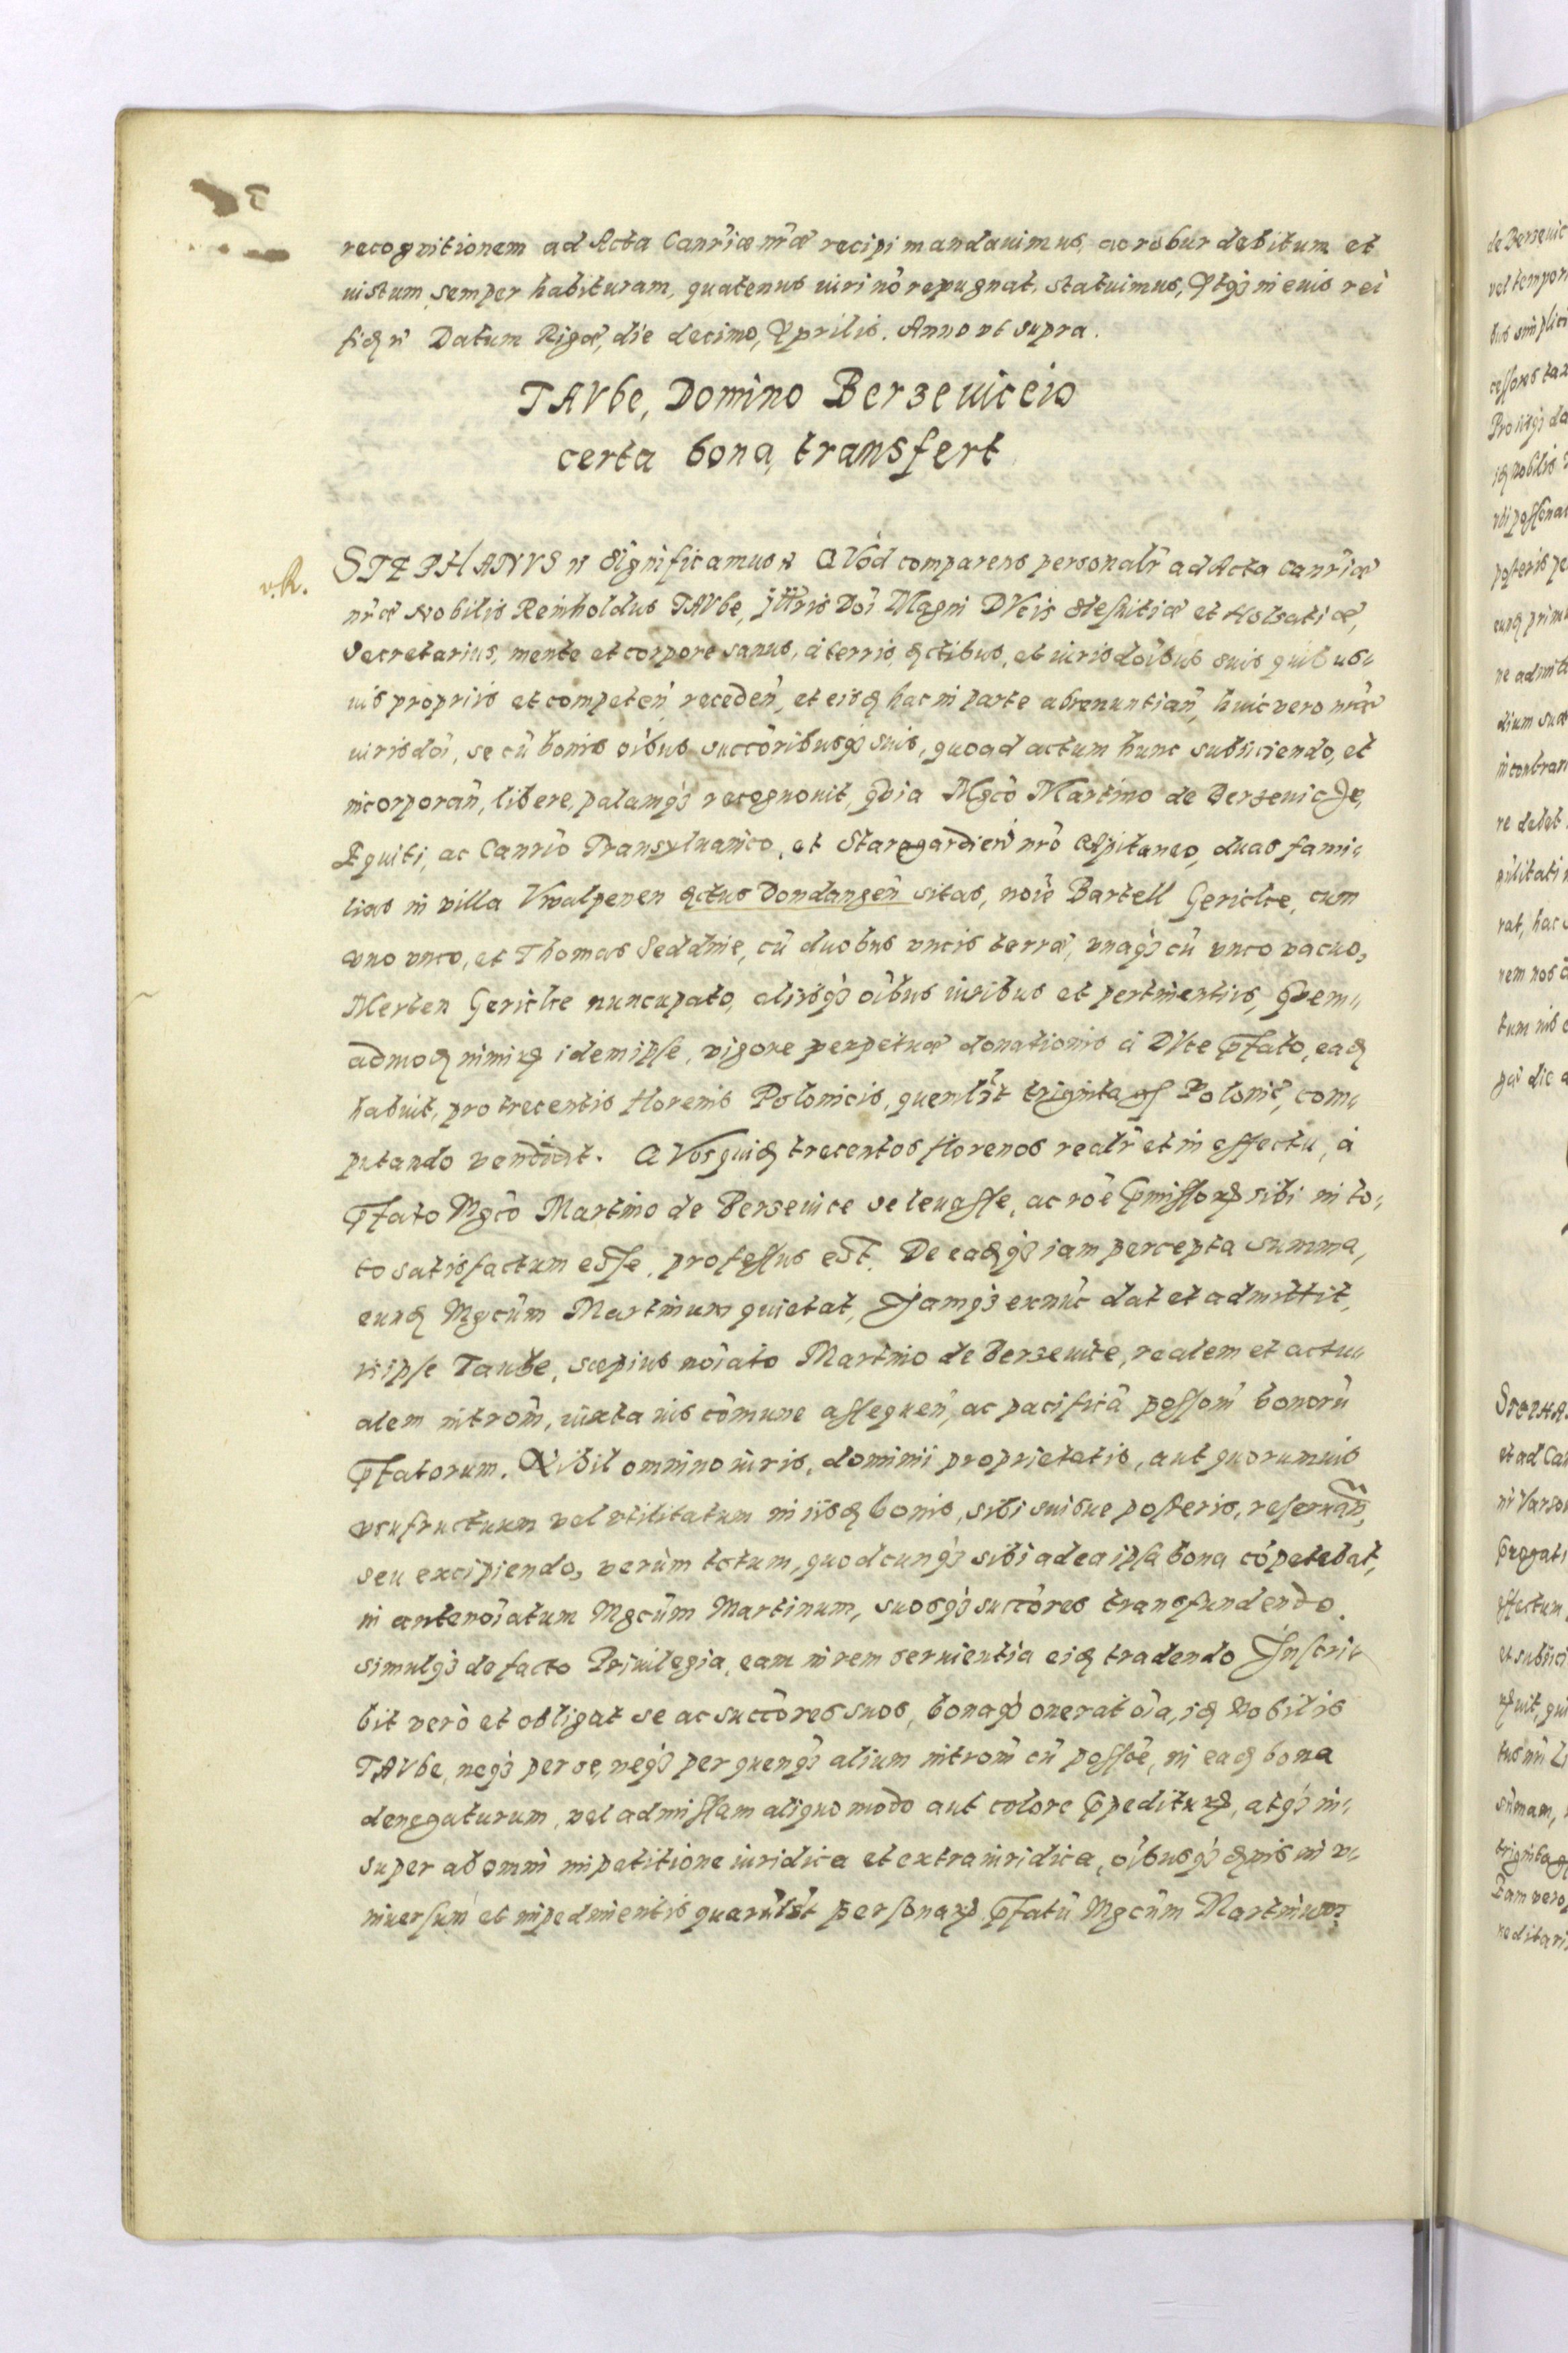 recognitionem ad Acta Canriæ nræ recipi mandauimus, ac robur debitum et
iustum semper habituram, quatenus iuri nō repugnat, statuimus, Atq; in eius rei
fidē Datum Rigæ, die decimo, Aprilis. Anno vt supra.
TAVbe, Domino Berzeuiceio
certa bona transfert
v.R.
STEPHANVS Significamus QVod comparens personalr ad Acta Canriæ
nræ Nobilis Reinholdus TAVbe, Illris Doi Magni DVcis Slesuitiæ et Holsatiæ,
Secretarius, mente et corpore sanus, à terris, dctibus, et iurisdoibus suis quibus-
uis propriis et competen, receden, et eisd hac in parte abrenuntian, huic vero nræ
iurisdoi, se cū bonis oibus succoribusq; suis, quoad actum hunc subiiciendo, et
incorporan, libere, palamq; recognouit, quia Mgco Martino de Berzeuicze,
Equiti, ac Canrio Transyluanico, et Staregardien nro Capitaneo, duas fami-
lias in villa Vwalpenen dctus Dondangen sitas, noie Bartell Gericke, cum
vno vnco, et Thomas Seddnie, cū duobus vncis terræ, vnaq; cū vnco vacuo,
Merten Gericke nuncupato, aliisq; oibus iuribus et pertinentiis, quem-
admod nimir idemipse, vigore perpetuæ donationis à DVce pfato, ead
habuit, pro trecentis florenis Polonicis, quemlibt triginta gs Polonic, com-
putando vendidit. QVos quid trecentos florenos realr et in effectu, à
pfato Mgco Martino de Berzeuice se leuasse, ac roe pmissor sibi in to-
to satisfactum esse, professus est. De eadq; iam percepta summa,
eund Mgcum Martinum quietat, Iamq; exnūc dat et admittit,
is ipse Taube, sæpius noiato Martino de Berzeuice, realem et actu-
alem introm, iuxta ius comune assequen, ac pacificā possom bonorū
pfatorum. Nihil omnino iuris, dominii proprietatis, aut quorumuis
vsufructuum vel vtilitatum in iisd bonis, sibi suisue posteris, reseruan,
seu excipiendo, verùm totum, quodcunq; sibi ad ea ipsa bona cōpetebat,
in antenoiatum Mgcum Martinum, suosq; succores transfundendo.
simulq; de facto Priuilegia, eam in rem seruientia eid tradendo Inscri-
bit verò et obligat se ac succores suos, bonaq; onerat oia, id Nobilis
TAVbe, neq; per se, neq; per quenq; alium introm cū possoe, in ead bona
denegaturum, vel admissam aliquo modo aut colore ppeditur, atq; in-
super ab omni impetitione iuridica et extraiuridica, oibusq; in v-
niuersum et impedimentis quarulibt personar pfatū Mgcum Martinum